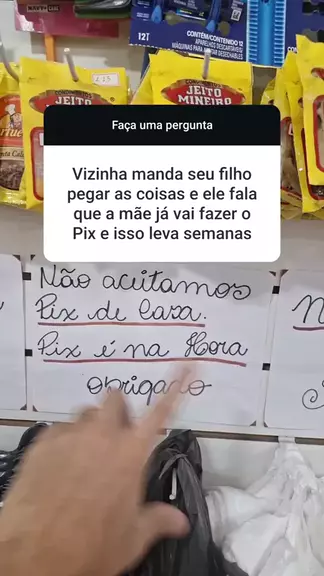 CONTÉM/CONTENIDO 12
12T
APARELHOS DESCARTÁVEIS
MÁQUINAS PARA AFEITAR DESECHABLES
JEITO MINEIRO
JEITO
MINEIRO
Faça uma pergunta
Vizinha manda seu filho
pegar as coisas e ele fala
que a mãe já vai fazer o
Pix e isso leva semanas
Não aceitamos
Pix de casa.
Pix é na Hora
obrigado